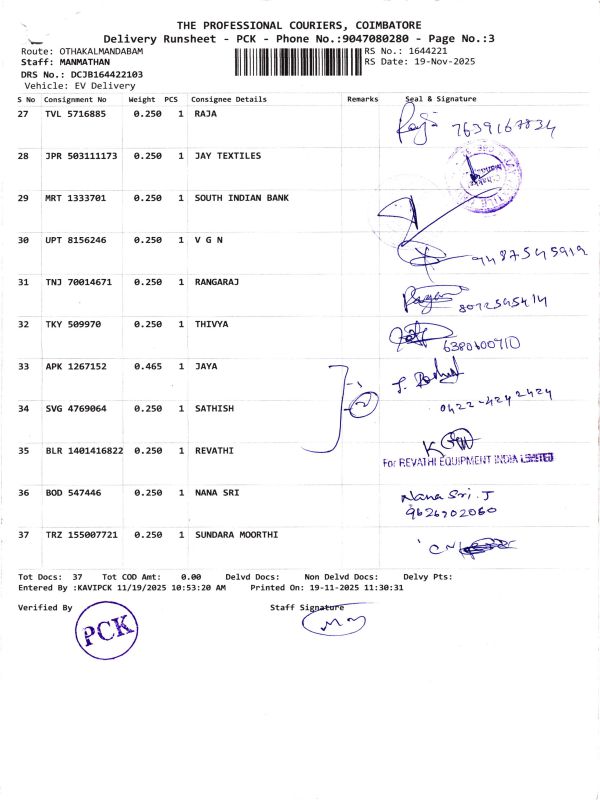 THE PROFESSIONAL COURIERS, COIMBATORE
Delivery Runsheet - PCK - Phone No.:9047080280 - Page No.:3
Route: OTHAKALMANDABAM RS No.: 1644221
Staff: MANMATHAN RS Date: 19-Nov-2025
DRS No.: DCJB164422103
Vehicle: EV Delivery
S No Consignment No Weight PCS Consignee Details Remarks Seal & Signature
27 TVL 5716885 0.250 1 RAJA Raja 7639167834
28 JPR 503111173 0.250 1 JAY TEXTILES
29 MRT 1333701 0.250 1 SOUTH INDIAN BANK
30 UPT 8156246 0.250 1 V G N 9487545919
31 TNJ 70014671 0.250 1 RANGARAJ
32 TKY 509970 0.250 1 THIVYA 6380600710
33 APK 1267152 0.465 1 JAYA
34 SVG 4769064 0.250 1 SATHISH 0422-4242424
35 BLR 1401416822 0.250 1 REVATHI
For REVATHI EQUIPMENT INDIA LIMITED
36 BOD 547446 0.250 1 NANA SRI Nana Sri. J
9626702060
37 TRZ 155007721 0.250 1 SUNDARA MOORTHI
Tot Docs: 37 Tot COD Amt: 0.00 Delvd Docs: Non Delvd Docs: Delvy Pts:
Entered By :KAVIPCK 11/19/2025 10:53:20 AM Printed On: 19-11-2025 11:30:31
Verified By Staff Signature
PCK